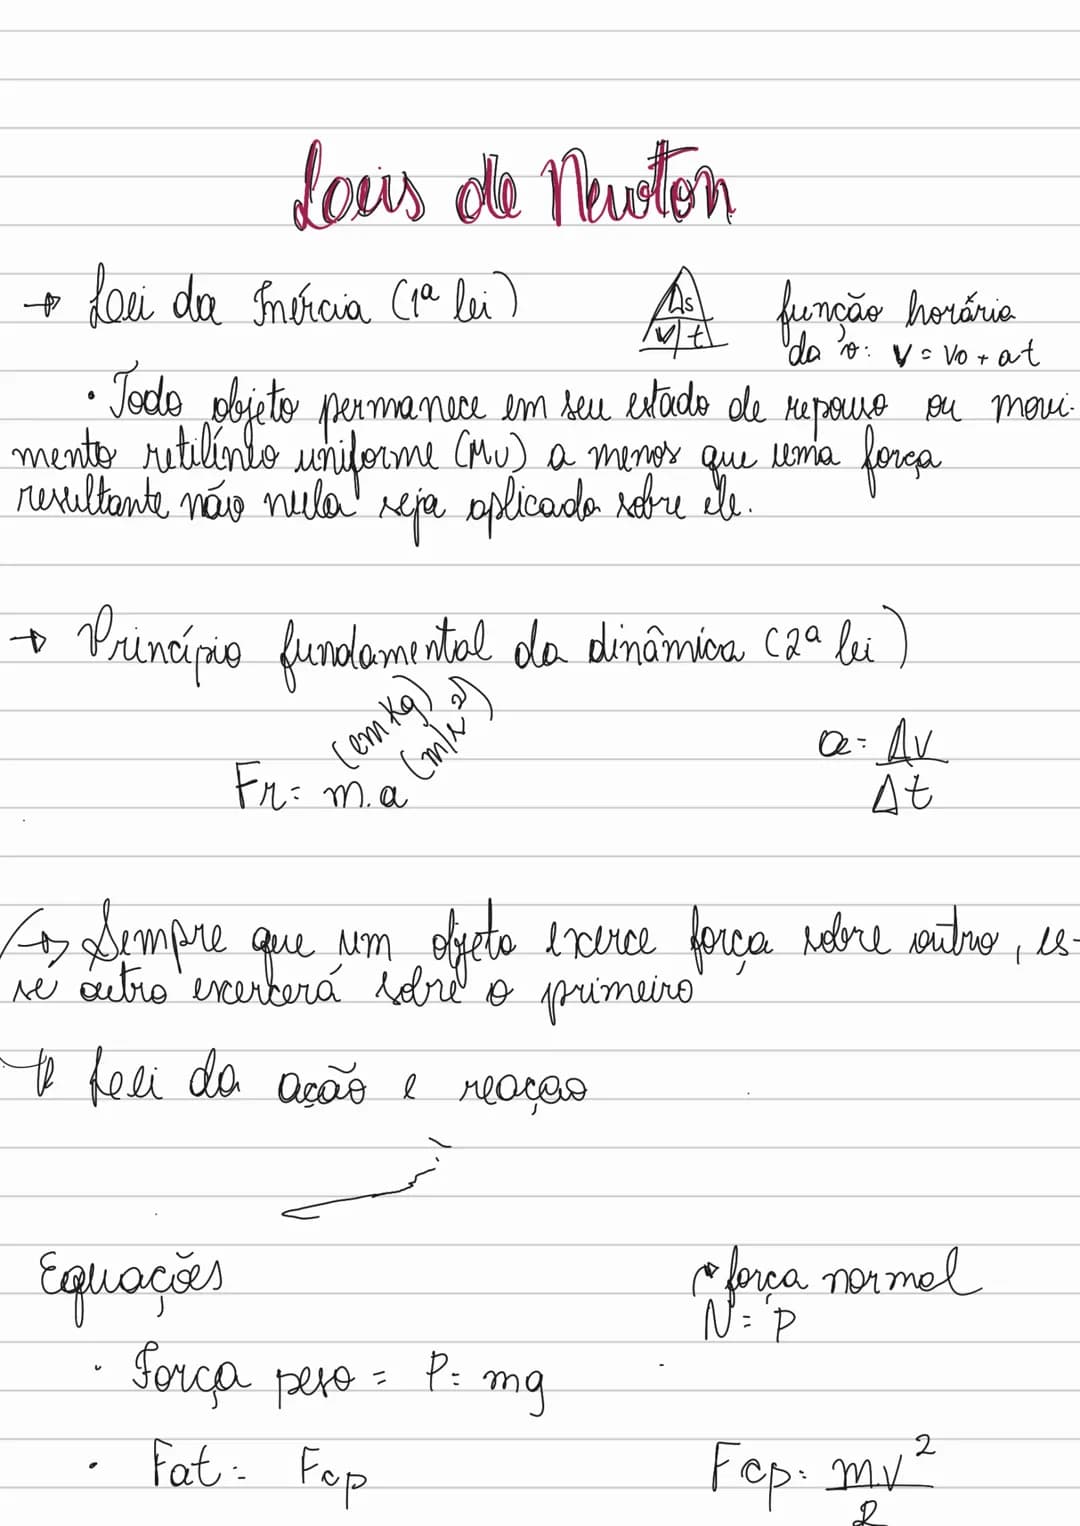 Leis de Newton
→ Lei da Inércia (1ª lei)
Δs
v | t
função horária
da v: v = vo + at
• Todo objeto permanece em seu estado de repouso ou movi-
mento retilíneo uniforme (MU) a menos que uma força
resultante não nula seja aplicada sobre ele.
→ Princípio fundamental da dinâmica (2ª lei)
(em kg)
(m/s²)
Fr = m.a
a = Δv
Δt
↳ Sempre que um objeto exerce força sobre outro, es-
se outro exercerá sobre o primeiro
↳ Lei da ação e reação
Equações
força normal
N = P
• Força peso = P = mg
• Fat = Fcp
Fcp = m.v²
R